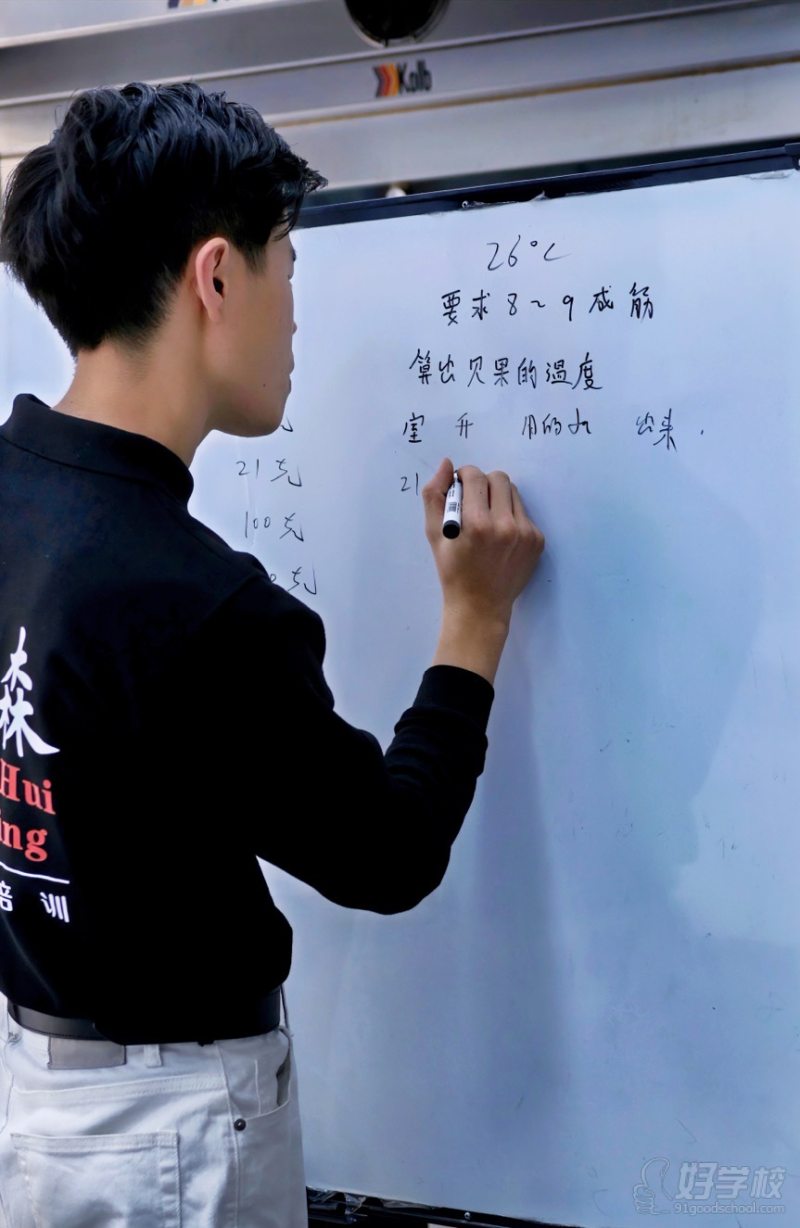 Kolb
26°C
要求8~9成筋
算出贝果的温度
室 升 用的 出来.
21克
21
100克
克
森
Hui
ing
培训
好学校
91goodschool.com